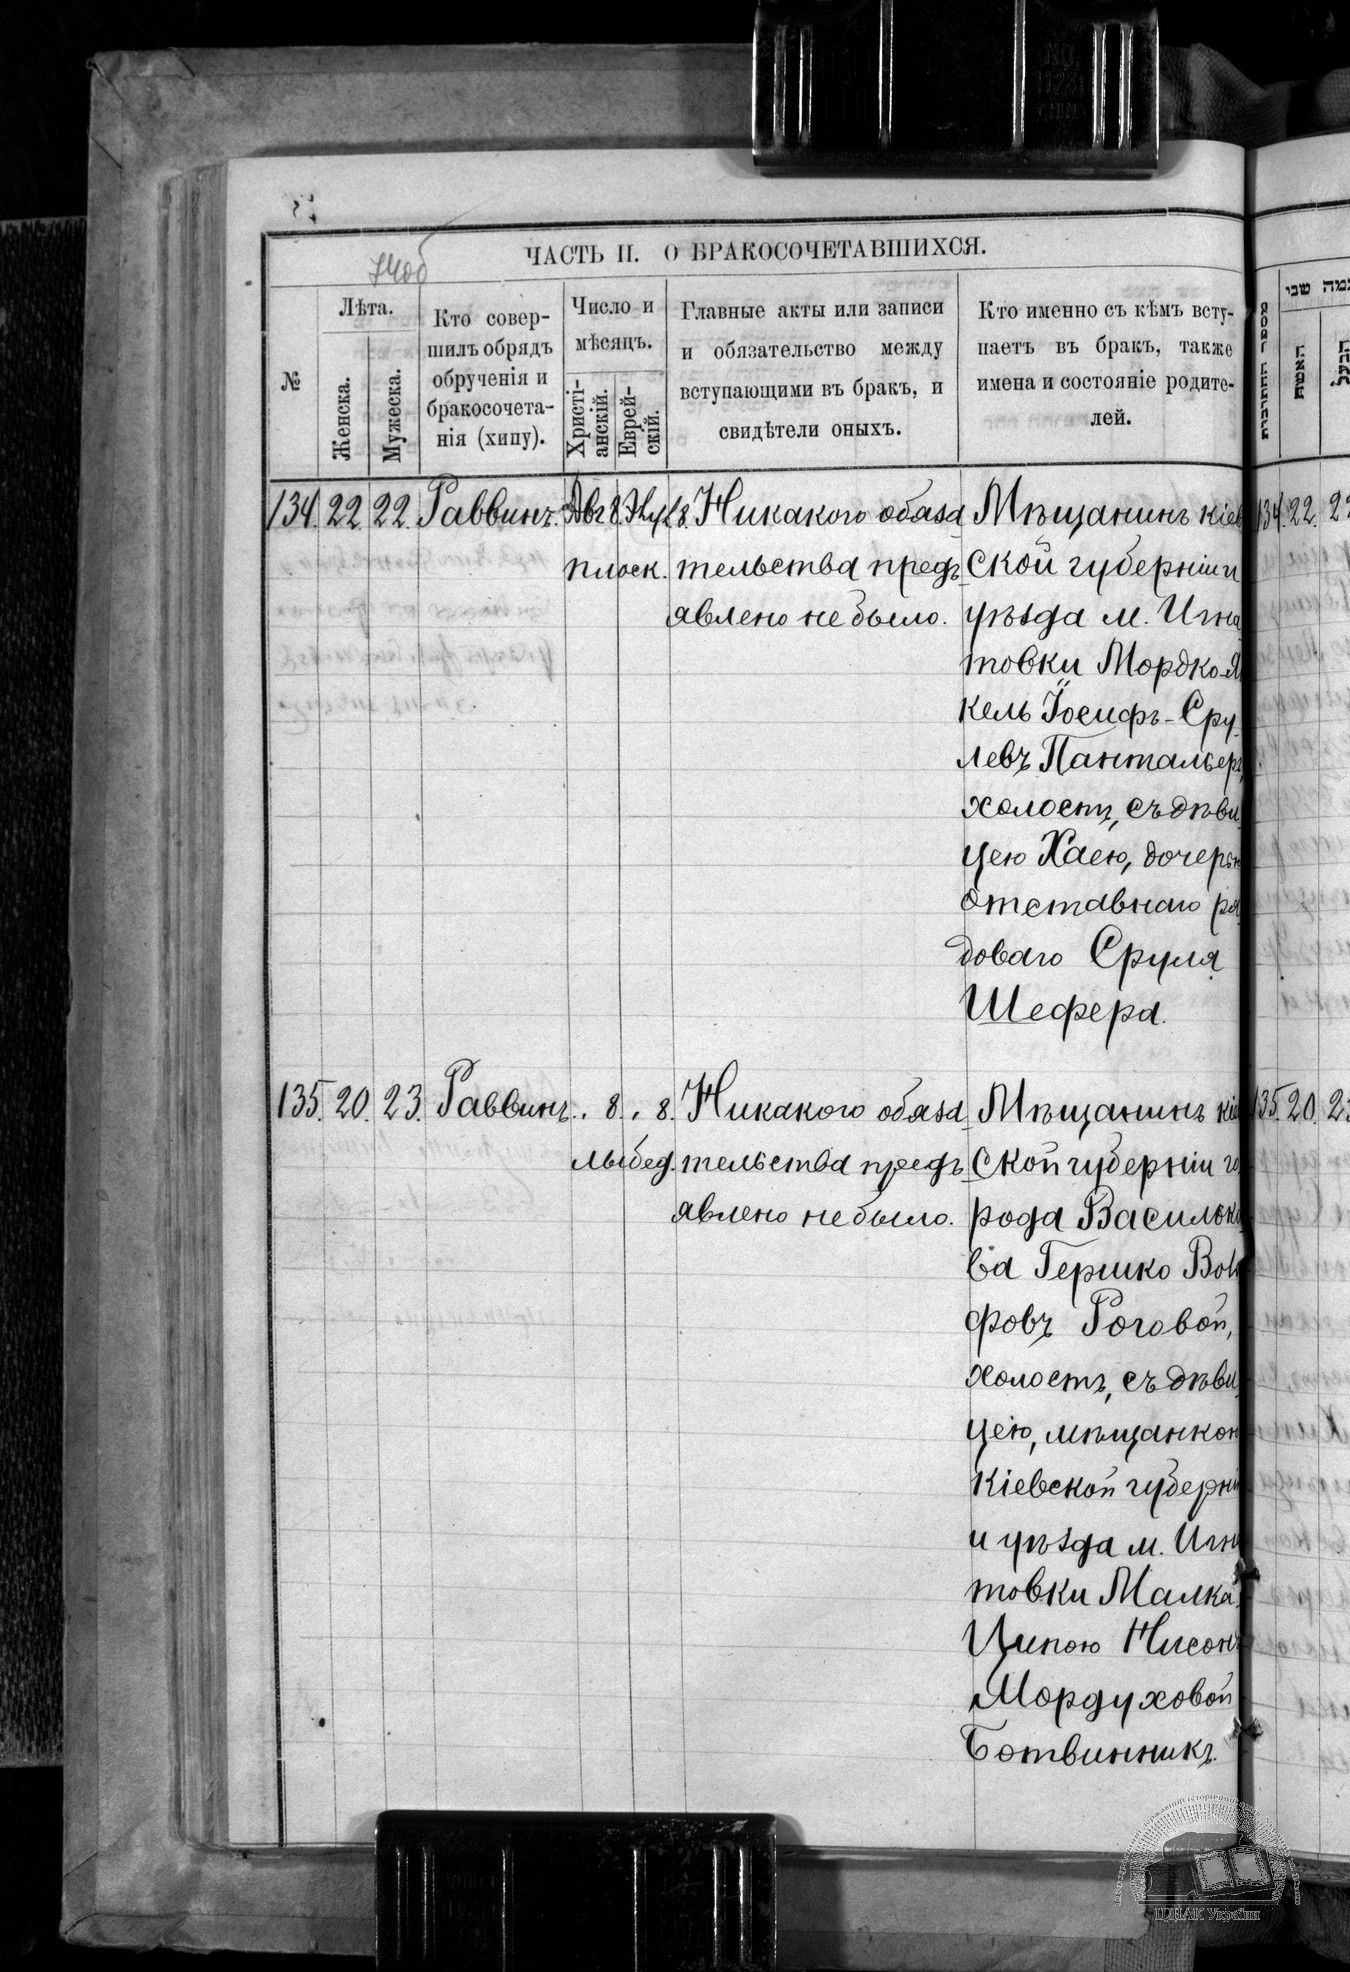 74об
ЧАСТЬ II. О БРАКОСОЧЕТАВШИХСЯ.
№
Лѣта.
Женска.
Мужеска.
Кто совер-
шилъ обрядъ
обрученія и
бракосочета-
нія (хипу).
Число и
мѣсяцъ.
Христі-
анскій.
Еврей-
скій.
Главные акты или записи
и обязательство между
вступающими въ бракъ, и
свидѣтели оныхъ.
Кто именно съ кѣмъ всту-
паетъ въ бракъ, также
имена и состояніе родите-
лей.
134. 22. 22. Раввинъ. Авг 8. 8. Никакого обяза
плоск. тельства предъ
явлено не было.
Мѣщанинъ кіев
ской губерніи и
уѣзда м. Игна
товки Мордко-Я
кель Іосифъ-Сру
левъ Пантальеръ,
холостъ, съ дѣви
цею Хаею, дочерью
отставнаго ря
доваго Сруля
Шефера.
135. 20. 23. Раввинъ. „ 8. „ 8. Никакого обяза
лыбед. тельства предъ
явлено не было.
Мѣщанинъ кіе
ской губерніи го
рода Василько
ва Гершко Воль
фовъ Роговой,
холостъ, съ дѣви
цею, мѣщанкой
Кіевской губерніи
и уѣзда м. Игна
товки Малка
Ципою Нисонъ
Мордуховой
Ботвинникъ.
מספר החתונות
האשה
הבעל
134. 22. 22
135. 20. 23
ЦДІАК України